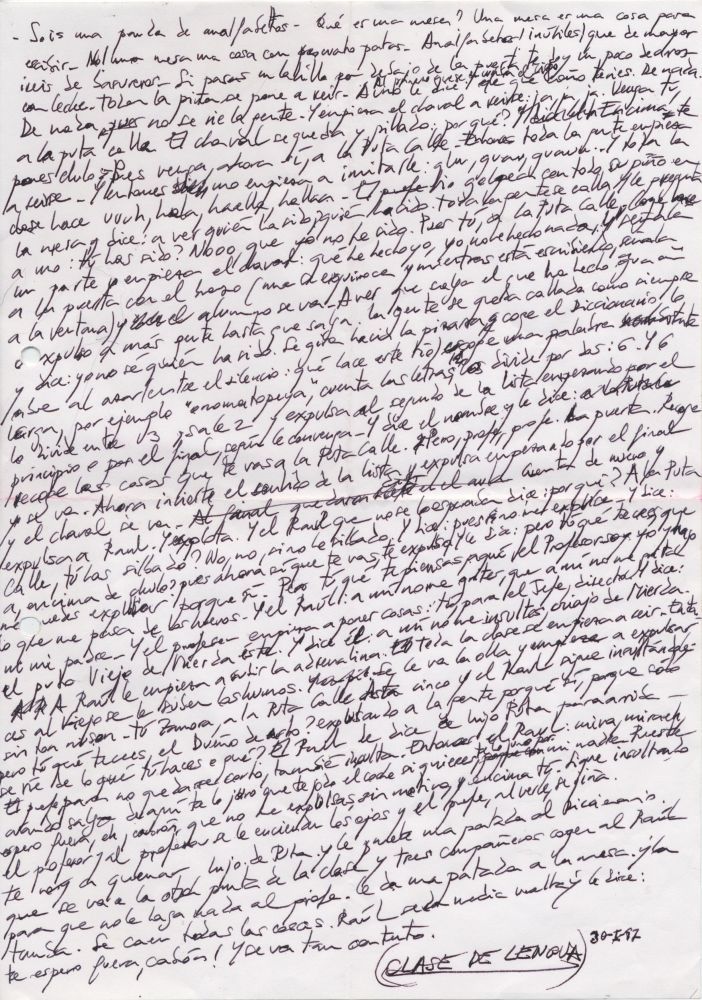 - Sois una panda de analfabetos - Qué es una mesa? Una mesa es una cosa para
escribir - No! una mesa una cosa con cuatro patas. Analfabetos! inútiles! que de mayor
iréis de basureros - Si pasas un ladrillo por debajo de la puerta te doy un poco de arroz
con leche - toda la pista se pone a reir - A uno le dice: de qué coño te ríes. De nada
De nada, pues no se ríe la gente - Y empieza el chaval a reirse: ja, ja, ja. Venga tú,
a la puta calle. El chaval se queda pillado: por qué? Encima te
pones chulo? Pues venga, ahora sí, a la Puta Calle - toda la gente empieza
a reirse - Y entonces uno empieza a imitarle: guau, guauu - Y toda la
clase hace uuuh, - El profe golpea con todo su puño en
la mesa y dice: a ver quién ha sido, quién ha sido. toda la gente se calla, y le pregunta
a uno: tú has sido? Nooo, que yo no he sido. Pues tú, a la Puta calle, coge
un parte y empieza el chaval: qué he hecho yo, yo no he hecho nada, y señala
a la puerta con el brazo (una vez se equivoca y mientras está escribiendo, señala
a la ventana) y el alumno se va - A ver que salga el que ha hecho guau o
expulso a más gente hasta que salga, la gente se queda callada como siempre
y dice: yo no sé quién ha sido. Se gira hacia la pizarra y coge el Diccionario, lo
abre al azar (entre el silencio: qué hace este tío) escoge una palabra
larga, por ejemplo "onomatopeya", cuenta las letras, las divide por dos: 6. Y 6
lo divide entre 3, sale 2 y expulsa al segundo de la lista empezando por el
principio o por el final, según le convenga - Y dice el nombre y le dice:
recoge las cosas que te vas a la Puta Calle. Pero, profe, profe. La puerta. Recoge
y se va. Ahora invierte el sentido de la lista y expulsa empezando por el final
y el chaval se va - cuenta de nuevo y
expulsa a Raúl. Y explota. Y el Raúl que no se lo esperaba dice: por qué? A la Puta
Calle, tú has silbado? No, no, si no he silbado. Y dice: pues no me explico - Y dice:
a, encima de chulo? pues ahora sí que te vas, te expulso. Y le dice: pero tú qué te crees que
me puedes expulsar porque sí - Pero tú qué te piensas, aquí el Profesor soy yo y hago
lo que me pasa de los huevos - Y el Raúl: a mí no me grites, que a mí no me grita
ni mi padre - Y el profesor empieza a poner cosas: tú, para el Jefe, director. Y dice:
el puto Viejo de Mierda este - Y dice él: a mí no me insultes, criajo de Mierda.
A Raúl le empieza a subir la adrenalina. toda la clase se empieza a reir. Enton
ces al Viejo se le suben los humos. Y se le va la olla y empieza a expulsar
sin ton ni son - tú Zamora, a la Puta Calle cinco y el Raúl sigue insultando
pero tú qué te crees, el Dueño de esto? expulsando a la gente porque sí, porque sólo
se ríe de lo que tú haces o qué? El Raúl le dice de hijo Puta para arriba -
El profe para no quedarse corto, también insulta. Entonces el Raúl: mira,
cuando salga de aquí te lo juro que te jodo el coche si quieres mi madre. Fuera te
espero fuera, eh, cabrón, que no me expulsas sin motivo y encima tú. Sigue insultando
el profesor, al profesor se le encienden los ojos y el profe, al verle, se gira.
te voy a quemar, hijo de Puta. y le mete una patada al Diccionario.
que se va a la otra punta de la clase y tres compañeros cogen al Raúl
para que no le haga nada al profe. Le da una patada a la mesa y la
tumba. Se caen todas las cosas. Raúl se da media vuelta y le dice:
te espero fuera, cabrón! Y se va tan contento.
30-I-97
(CLASE DE LENGUA)